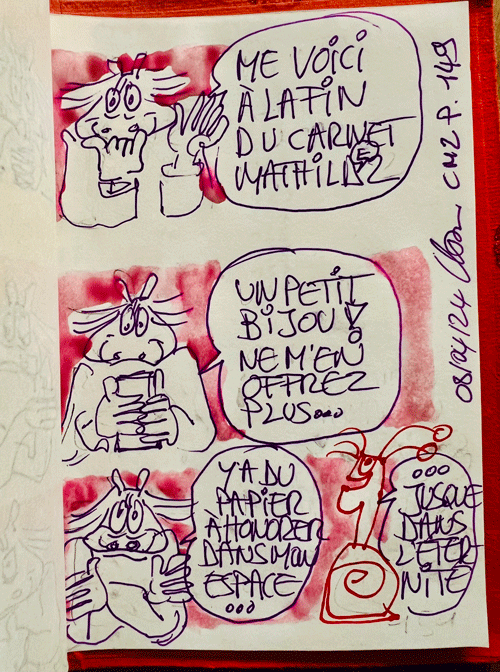 ME VOICI
À LA FIN
DU CARNET
MATHILDE 2
UN PETIT
BIJOU!
NE M'EN
OFFREZ
PLUS...
Y'A DU
PAPIER
À HONORER
DANS MON
ESPACE
...
...
JUSQUE
DANS
L'ÉTER
NITÉ
08/04/24
CM2 P. 149